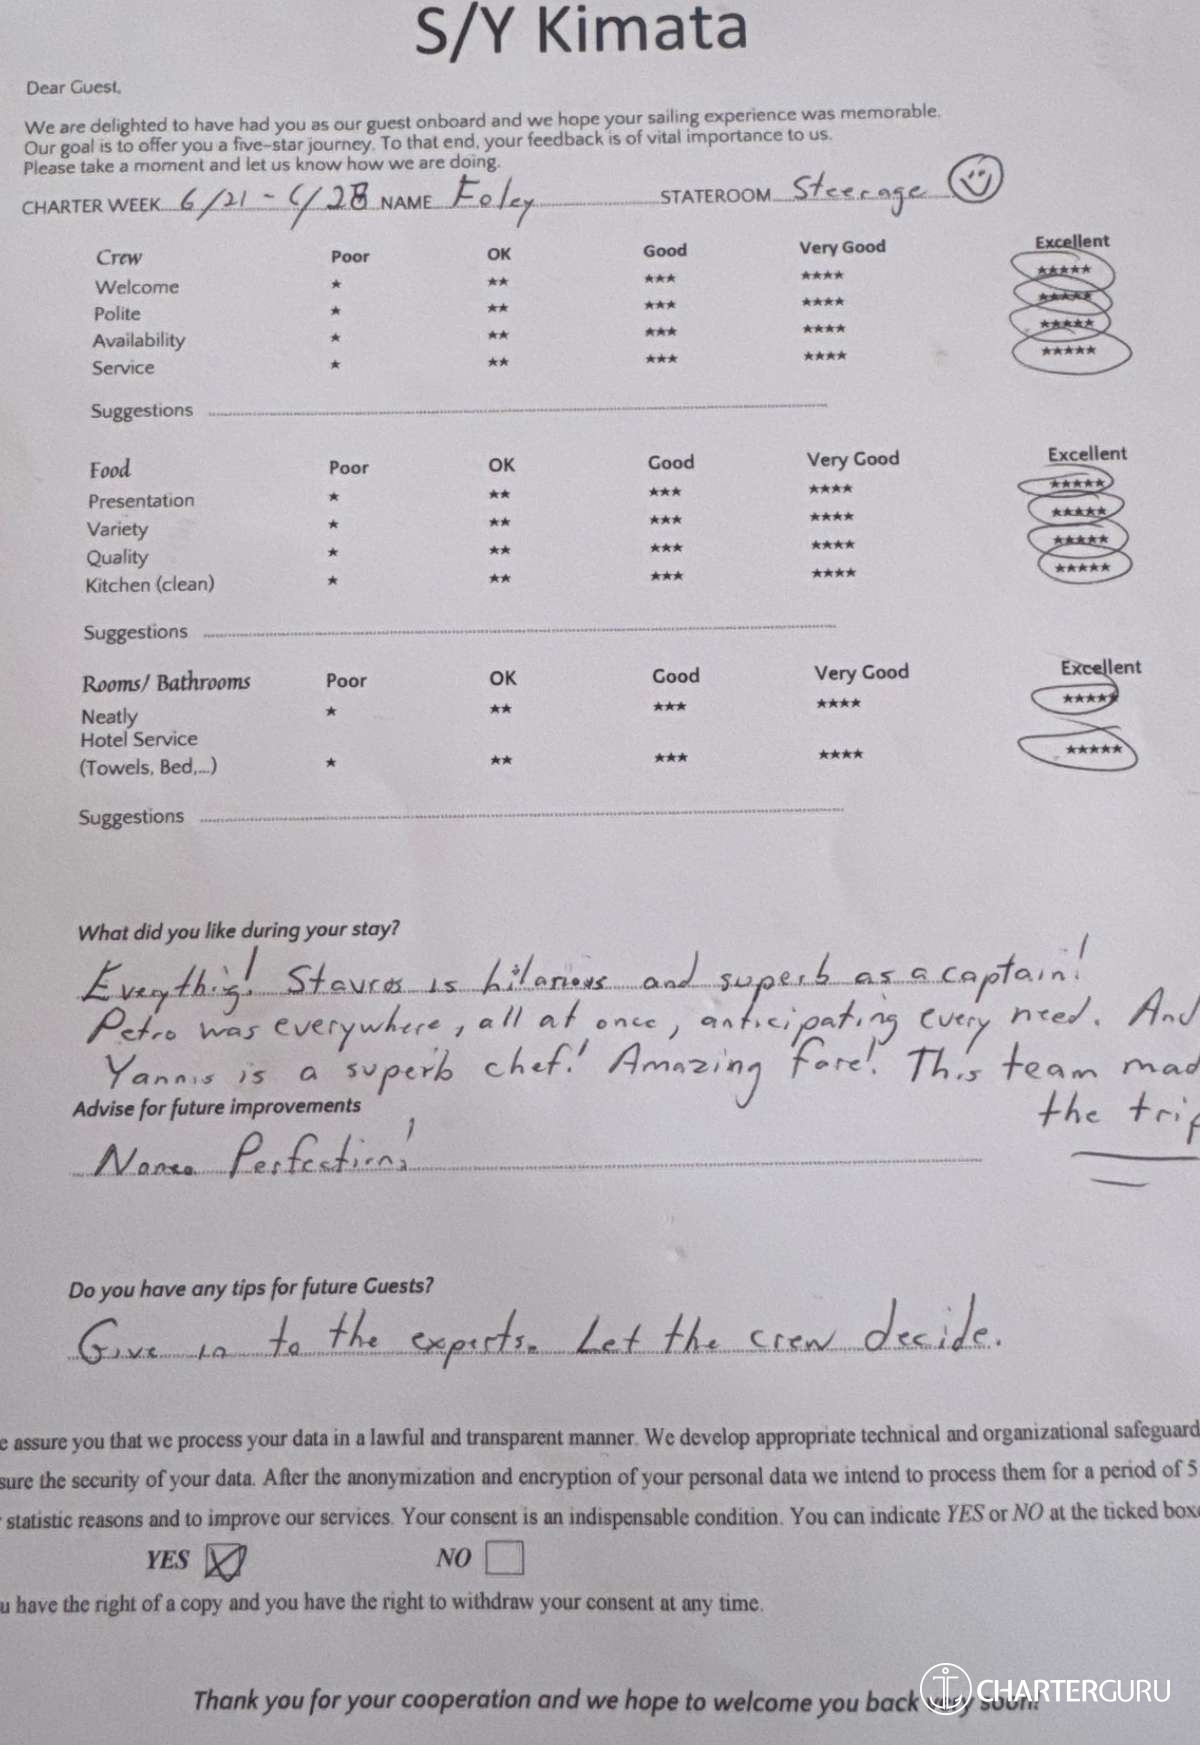 S/Y Kimata
Dear Guest,
We are delighted to have had you as our guest onboard and we hope your sailing experience was memorable.
Our goal is to offer you a five-star journey. To that end, your feedback is of vital importance to us.
Please take a moment and let us know how we are doing.
CHARTER WEEK 6/21 - 6/28 NAME Foley STATEROOM Steerage
Crew Poor OK Good Very Good Excellent
Welcome ★ ★★ ★★★ ★★★★ ★★★★★
Polite ★ ★★ ★★★ ★★★★ ★★★★★
Availability ★ ★★ ★★★ ★★★★ ★★★★★
Service ★ ★★ ★★★ ★★★★ ★★★★★
Suggestions
Food Poor OK Good Very Good Excellent
Presentation ★ ★★ ★★★ ★★★★ ★★★★★
Variety ★ ★★ ★★★ ★★★★ ★★★★★
Quality ★ ★★ ★★★ ★★★★ ★★★★★
Kitchen (clean) ★ ★★ ★★★ ★★★★ ★★★★★
Suggestions
Rooms/ Bathrooms Poor OK Good Very Good Excellent
Neatly ★ ★★ ★★★ ★★★★ ★★★★★
Hotel Service
(Towels, Bed,...) ★ ★★ ★★★ ★★★★ ★★★★★
Suggestions
What did you like during your stay?
Everything! Stavros is hilarious and superb as a captain!
Petro was everywhere, all at once, anticipating every need. And
Yannis is a superb chef! Amazing fare! This team mad
the trip
Advise for future improvements
None. Perfection!
Do you have any tips for future Guests?
Give in to the experts. Let the crew decide.
e assure you that we process your data in a lawful and transparent manner. We develop appropriate technical and organizational safeguard
sure the security of your data. After the anonymization and encryption of your personal data we intend to process them for a period of 5
statistic reasons and to improve our services. Your consent is an indispensable condition. You can indicate YES or NO at the ticked box
YES NO
u have the right of a copy and you have the right to withdraw your consent at any time.
Thank you for your cooperation and we hope to welcome you back very soon!
CHARTERGURU